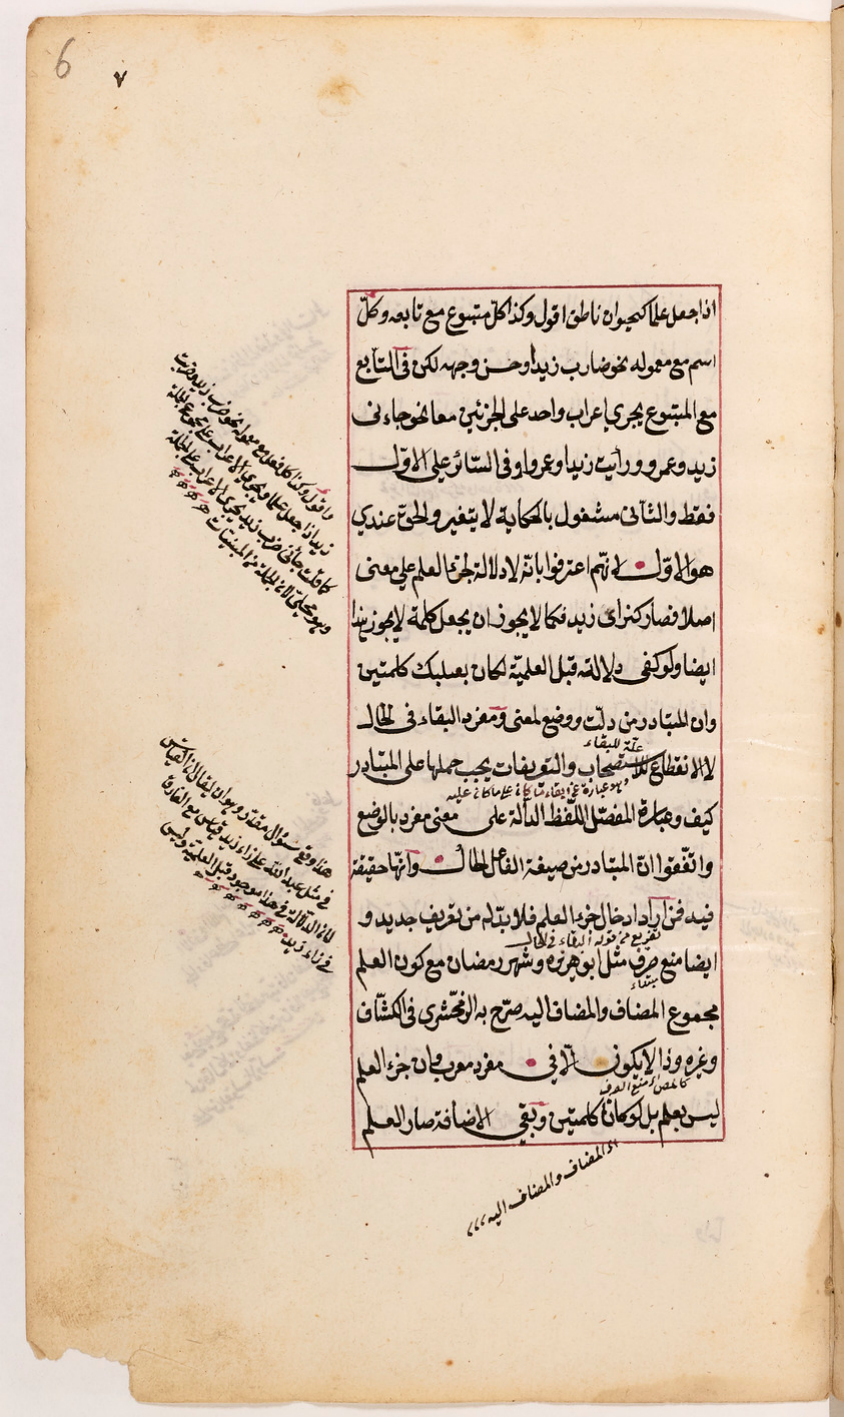 6
٧
اذا جعل علما كحيوان ناطق اقول وكذا كل متبوع مع تابعه وكلّ
اسم مع معموله نحو ضارب زيدا وحسن وجهه لكن فى التابع
مع المتبوع يجرى اعراب واحد على الجزئين معا نحو جاءنى
زيد وعمرو ورأيت زيدا وعمروا وفى السائر على الاوّل
فقط والثانى مشغول بالحكاية لا يتغير والحق عندي
هو الاوّل لانهم اعترفوا بانه لا دلالة لجزء العلم على معنى
اصلا فصار كزاى زيد فكما لا يجوز ان يجعل كلمة لا يجوز هذا
ايضا ولو كفى دلالته قبل العلميّة لكان بعلبك كلمتين
وان المتبادر من دلّت ووضع لمعنى ومفرد البقاء فى الحال
علّة للبقاء
لا الانقطاع للاستصحاب والتعريفات يجب حملها على المتبادر
وهو عبارة عن ابقاء ما كان على ما كان عليه
كيف وعبارة المفصّل اللّفظ الدالة على معنى مفرد بالوضع
واتّفقوا انّ المتبادر من صيغة الفاعل الحال وانّها حقيقة
فيه فمن اراد ادخال جزء العلم فلا بدّ له من تعريف جديد و
تفريع من قوله البقاء فى الحال
ايضا منع صرف مثل ابو هريره وشهر رمضان مع كون العلم
مبتداء
مجموع المضاف والمضاف اليه صرّح به الزمخشرى فى الكشّاف
وغيره وذا لا يكون الّا فى مفرد معرب فان جزء العلم
ليس بعلم بل لو كانا كلمتين وبقى الاضافة صار العلم
اى المضاف والمضاف اليه
واقول وكذا كل فعل مع معموله نحو ضرب زيد وضربت
زيدا اذا جعل علما ويجرى الاعراب على مجموع الجملة
كما قلت جائنى ضرب زيد يجرى الاعراب على الجملة
وهو محلى لان الجملة من المبنيات
هذا وقع سؤال مقدّر وهو ان يقال ان القياس
فى مثل عبد الله على زاء زيد قياس مع الفارق
لان الدلالة فى هذا موجود قبل العلمية وليس
فى زاء زيد